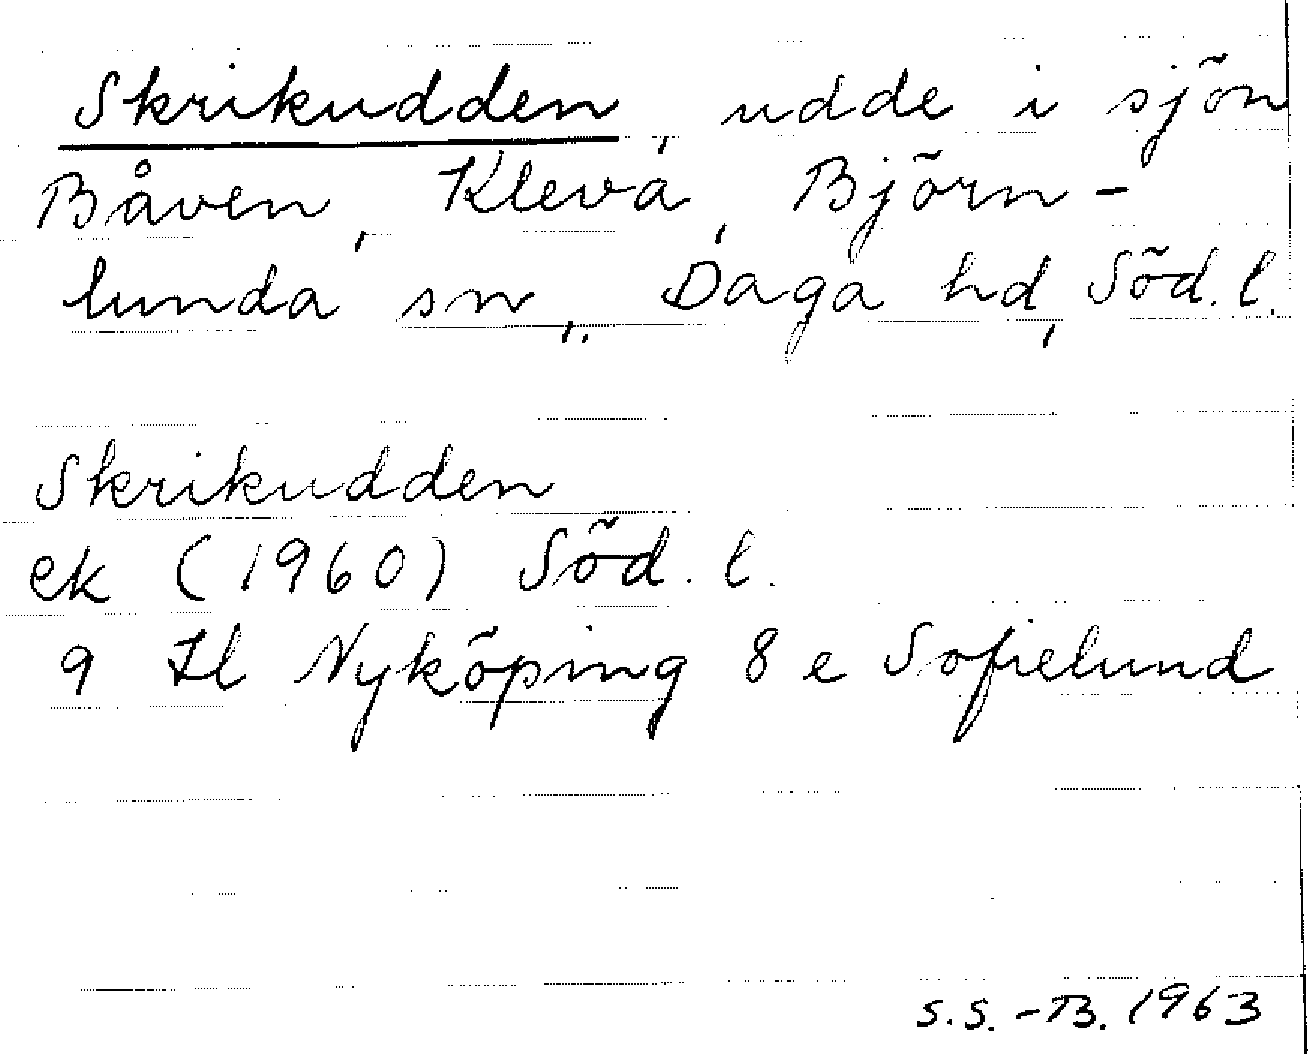 Skrikudden, udde i sjön
Båven, Kleva, Björn-
lunda sn, Daga hd, Söd. l.
Skrikudden
ek (1960) Söd. l.
9 H l Nyköping 8 e Sofielund
S.S.-B. 1963